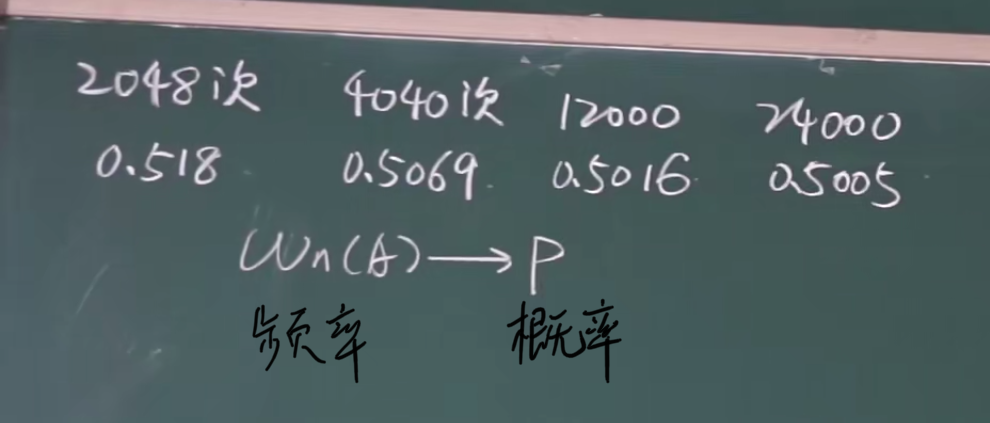 2048次 4040次 12000 24000
0.518 0.5069 0.5016 0.5005
Wn(A)→P
频率 概率